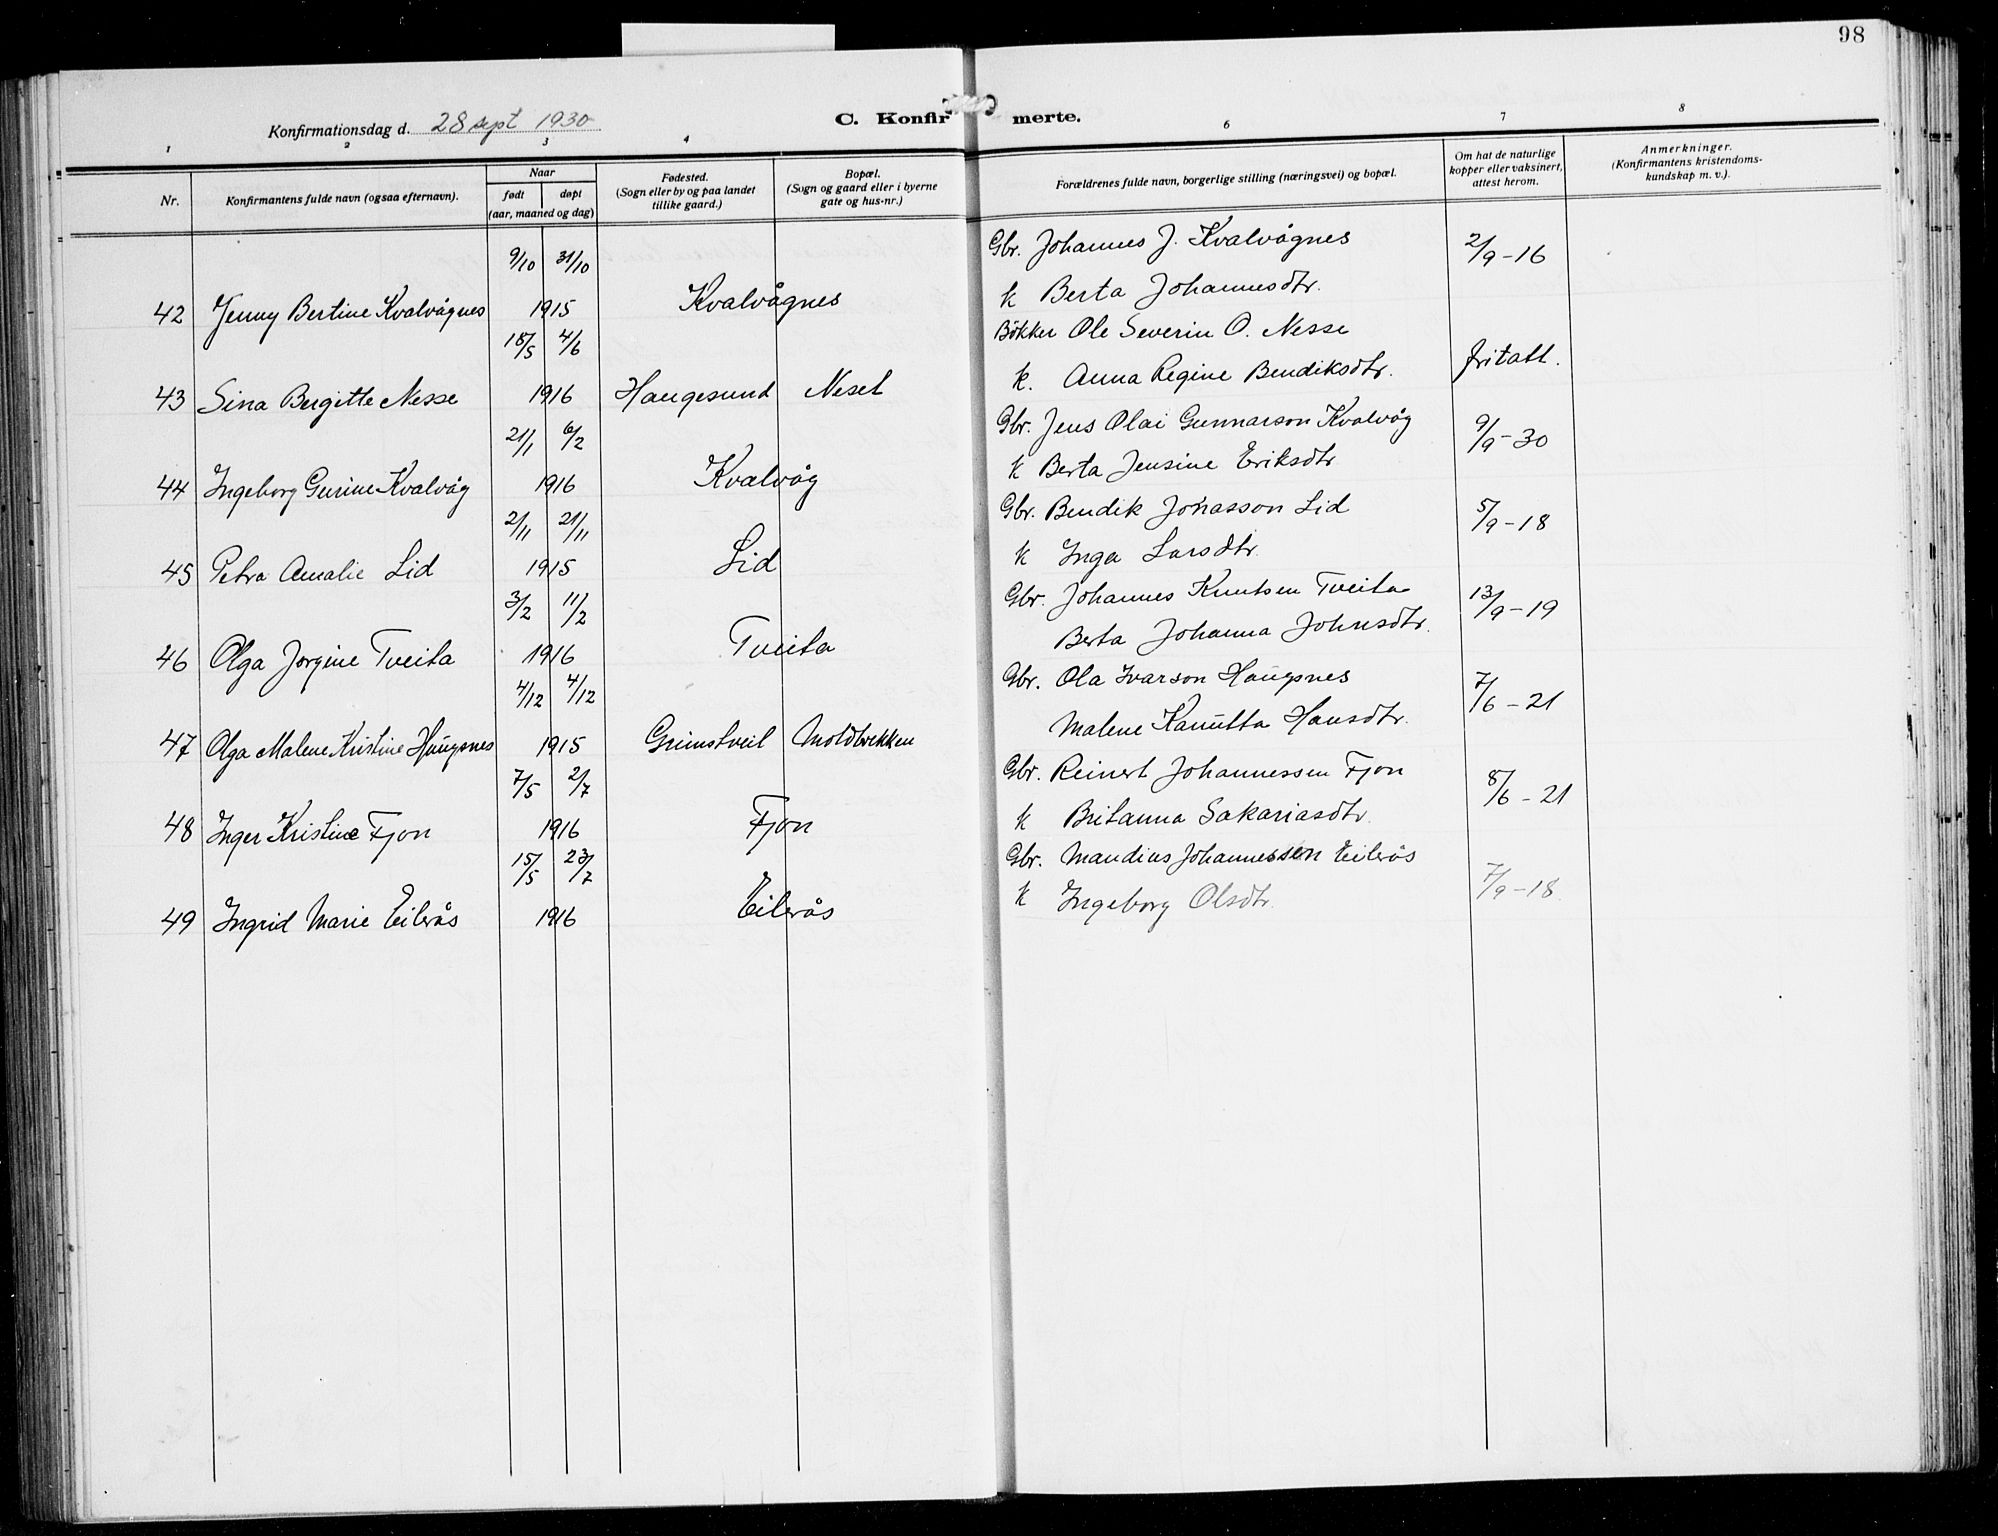 98
Konfirmationsdag d. 28 sept 1930
C. Konfirmerte.
1 2 3 4 6 7 8
Nr.
Konfirmantens fulde navn (ogsaa efternavn).
Naar
født døpt
(aar, maaned og dag)
Fødested.
(Sogn eller by og paa landet
tillike gaard.)
Bopæl.
(Sogn og gaard eller i byerne
gate og hus-nr.)
Forældrenes fulde navn, borgerlige stilling (næringsvei) og bopæl.
Om hat de naturlige
kopper eller vaksinert,
attest herom.
Anmerkninger.
(Konfirmantens kristendoms-
kundskap m. v.).
9/10 31/10 Gbr. Johannes J. Kvalvågnes 2/9-16
42 Jenny Bertine Kvalvågnes 1915 Kvalvågnes k Berta Johannesdtr.
18/5 4/6 Bökker Ole Severin O. Nesse
43 Sina Bergitte Nesse 1916 Haugesund Neset k. Anna Regine Bendiksdtr. fritatt.
21/1 6/2 Gbr. Jens Olai Gunnarson Kvalvåg 9/9-30
44 Ingeborg Gurine Kvalvåg 1916 Kvalvåg k Berta Jensine Eriksdtr
2/11 21/11 Gbr. Bendik Jonasson Lid 5/9-18
45 Petra Amalie Lid 1915 Lid k Inga Larsdtr.
3/2 11/2 Gbr. Johannes Knutsen Tveita 13/9-19
46 Olga Jorgine Tveita 1916 Tveita Berta Johanna Johnsdtr.
4/12 4/12 Gbr. Ola Ivarson Haugsnes 7/6-21
47 Olga Malene Kristine Haugsnes 1915 Grimstveit Moldbrekken Malene Kanutta Hansdtr.
7/5 2/7 Gbr. Reinert Johannessen Fjon 8/6-21
48 Inger Kristine Fjon 1916 Fjon k Britanna Sakariasdtr.
15/5 23/7 Gbr. Mandius Johannessen Eilerås
49 Ingrid Marie Eilerås 1916 Eilerås k Ingeborg Olsdtr. 7/9-18.